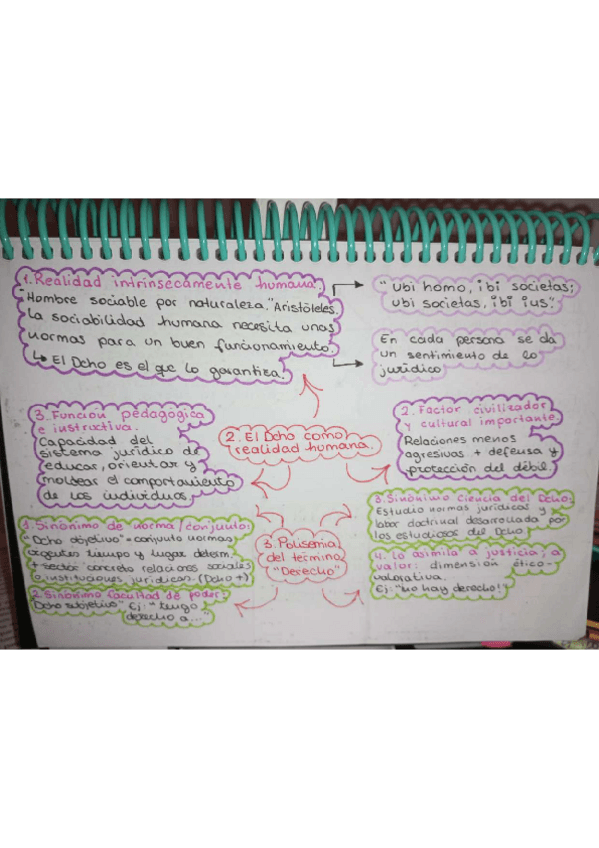 1. Realidad intrínsecamente humana.
"Hombre sociable por naturaleza." Aristóteles.
La sociabilidad humana necesita unas
normas para un buen funcionamiento.
↳ El Dcho es el que lo garantiza.
"Ubi homo, ibi societas;
ubi societas, ibi ius".
En cada persona se da
un sentimiento de lo
jurídico
3. Función pedagógica
e instructiva.
Capacidad del
sistema jurídico de
educar, orientar y
moldear el comportamiento
de los individuos.
2. El Dcho como
realidad humana.
2. Factor civilizador
y cultural importante.
Relaciones menos
agresivas + defensa y
protección del débil.
1. Sinónimo de norma/conjunto:
"Dcho objetivo" = conjunto normas
tiempo y lugar determ.
+ sector concreto relaciones sociales
o instituciones jurídicas. (Dcho +)
2. Sinónimo facultad de poder:
"Dcho subjetivo" Ej: "tengo
derecho a..."
3. Polisemia
del término
"Derecho"
3. Sinónimo Ciencia del Dcho:
Estudio normas jurídicas y
labor doctrinal desarrollada por
los estudiosos del Dcho.
4. Lo asimila a justicia; a
valor: dimensión ético-
valorativa.
Ej: "no hay derecho!"